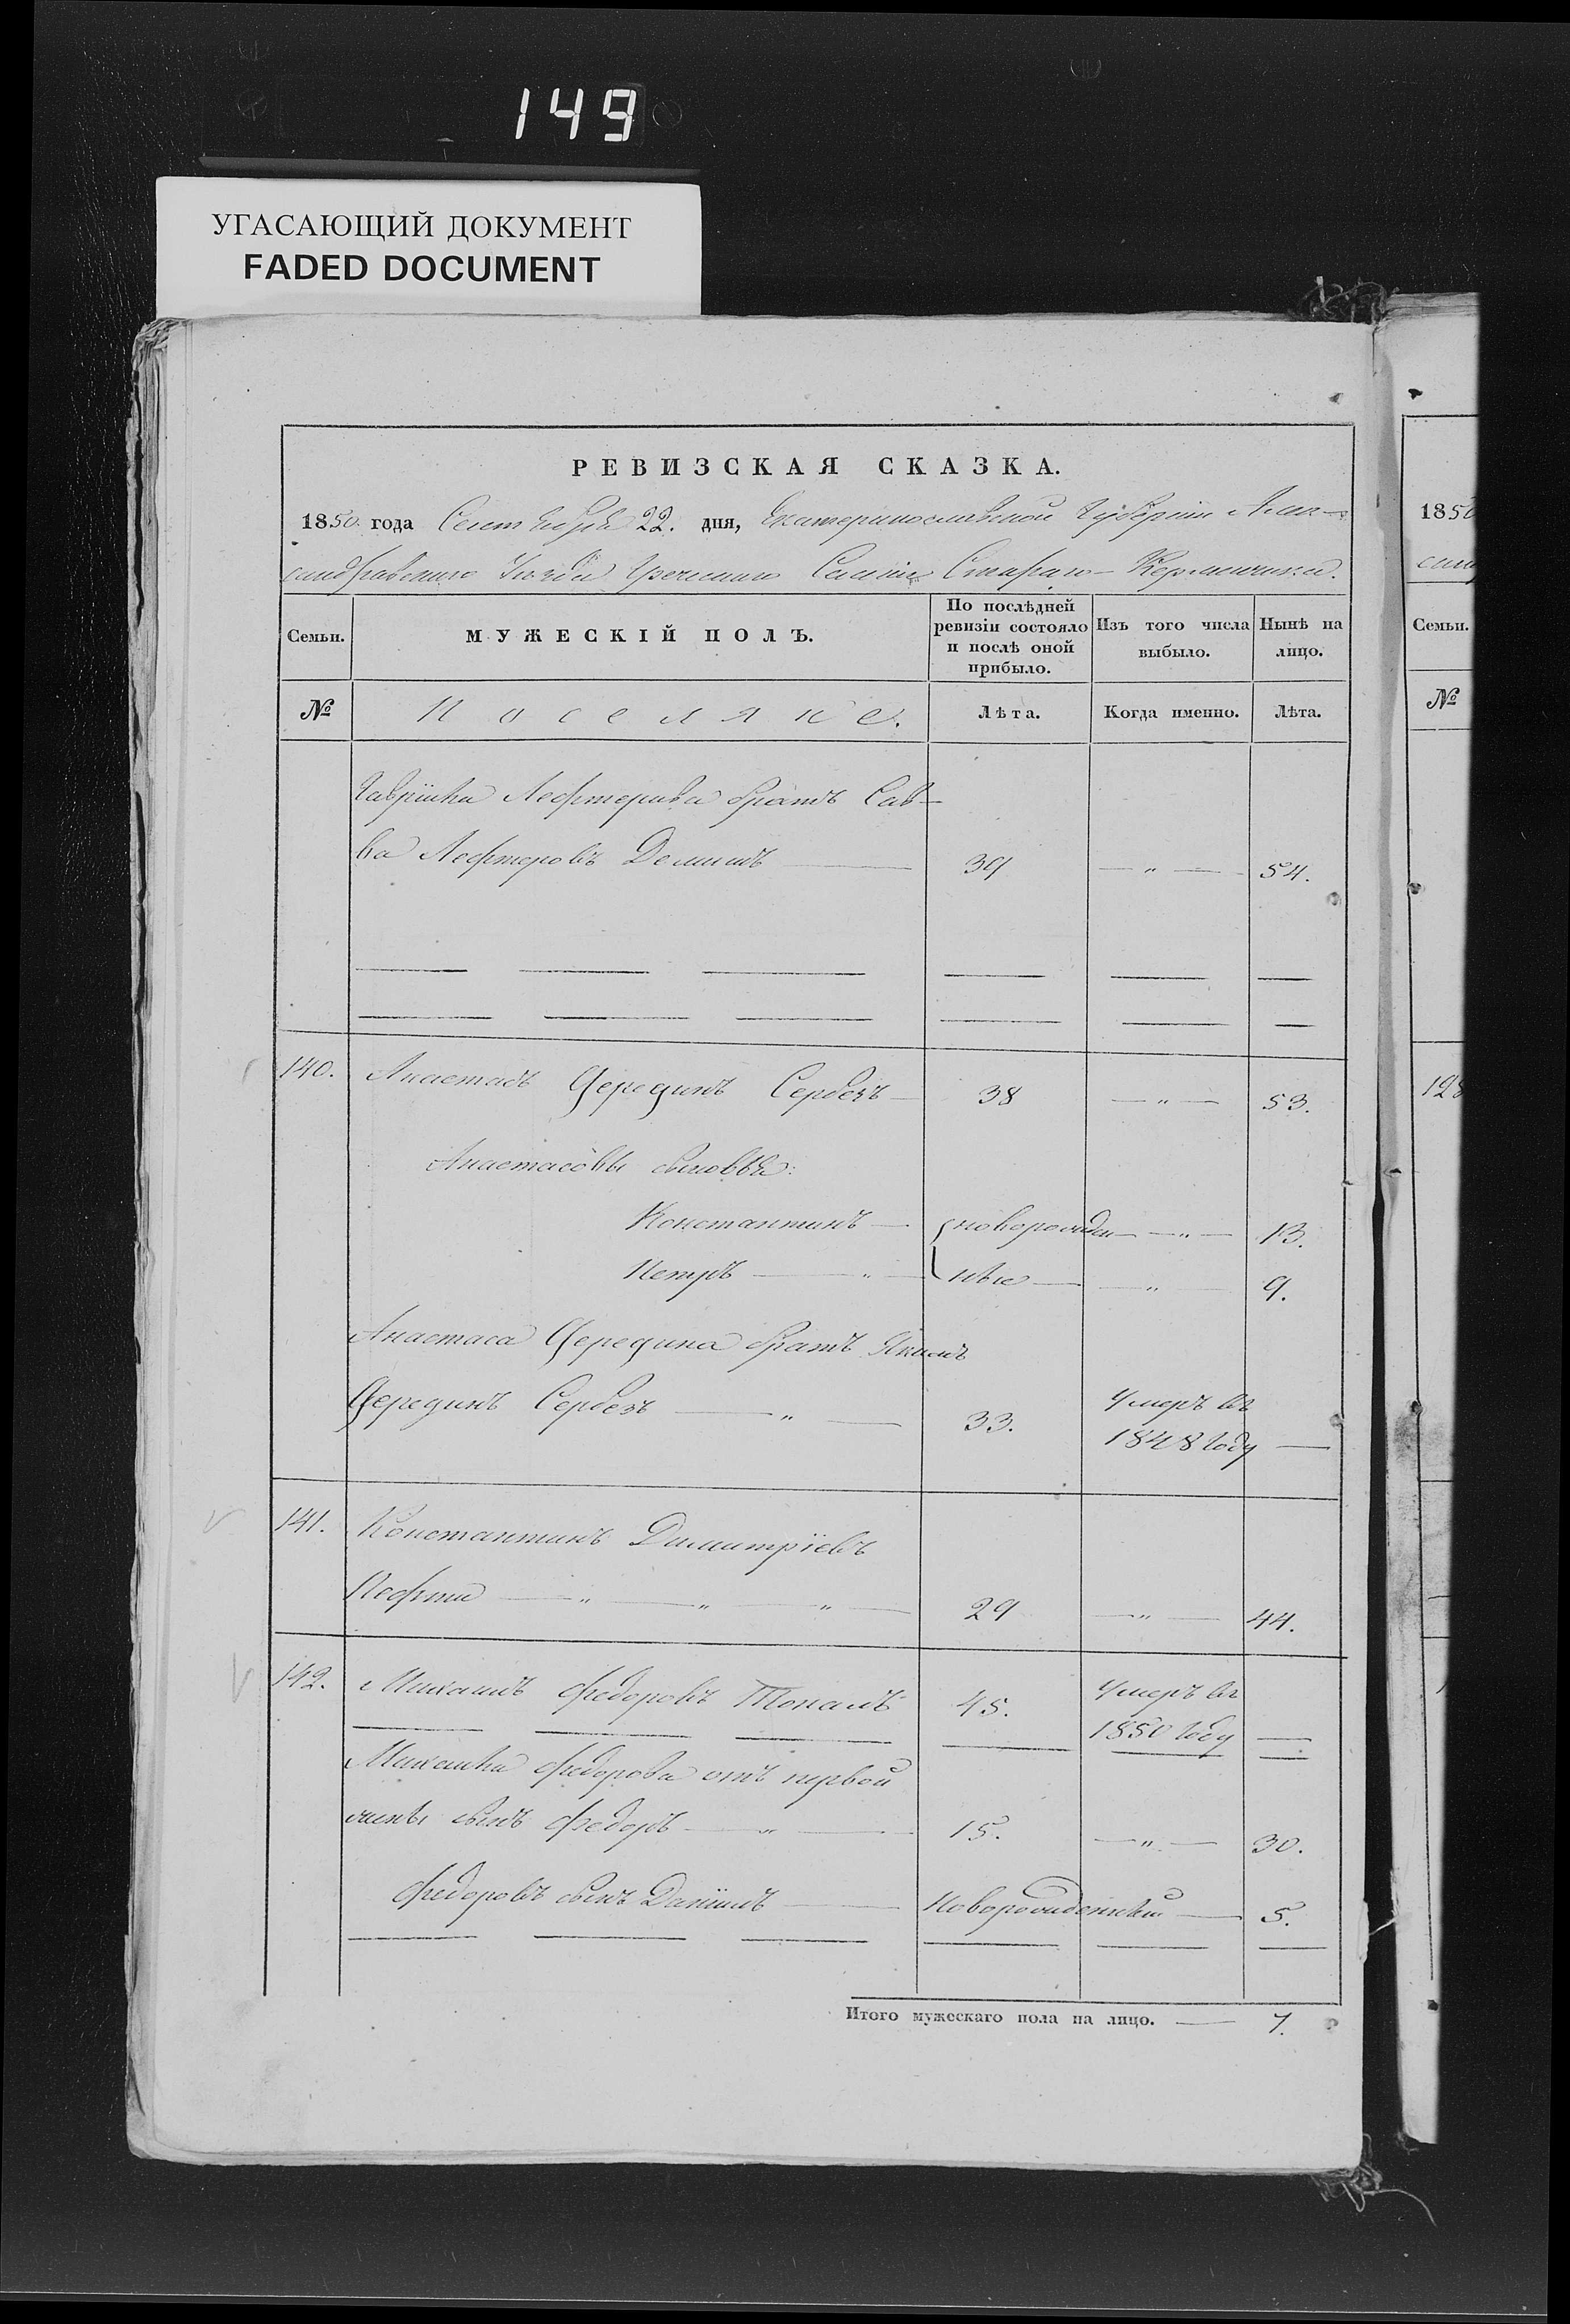 149
УГАСАЮЩИЙ ДОКУМЕНТ
FADED DOCUMENT
РЕВИЗСКАЯ СКАЗКА.
1850 года Сентября 22. дня, Екатеринославской Губернiи Алек-
сандровскаго Уезда Греческаго Селенiя Стараго-Керменчика.
Семьи.
МУЖЕСКIЙ ПОЛЪ.
По послѣдней ревизiи состояло и послѣ оной прибыло.
Изъ того числа выбыло.
Нынѣ на лицо.
№
Поселяне.
Лѣта.
Когда именно.
Лѣта.
Гаврiила Лефтерова братъ Сав-
ва Лефтеровъ 39 — „ — 54.
140. Анастасъ Цередикъ Сербезъ — 38 — „ — 53.
Анастасовы сыновья:
Константинъ — новорожден- — „ — 13.
Петръ — „ — ные — — „ — 9.
Анастаса братъ Якимъ
Сербезъ — „ — 33. Умеръ въ
1848 году —
141. Константинъ Димитрiевъ
— „ — „ — „ — 29 — „ — 44.
142. Михаилъ Федоровъ Топалъ 45. Умеръ въ
1850 году —
Михаила Федорова отъ первой
жены сынъ Федоръ — „ — 15. — „ — 30.
Федоровъ сынъ Данiилъ — Новорожденный — 5.
Итого мужескаго пола на лицо. — 7.
1850
Семьи.
№
128